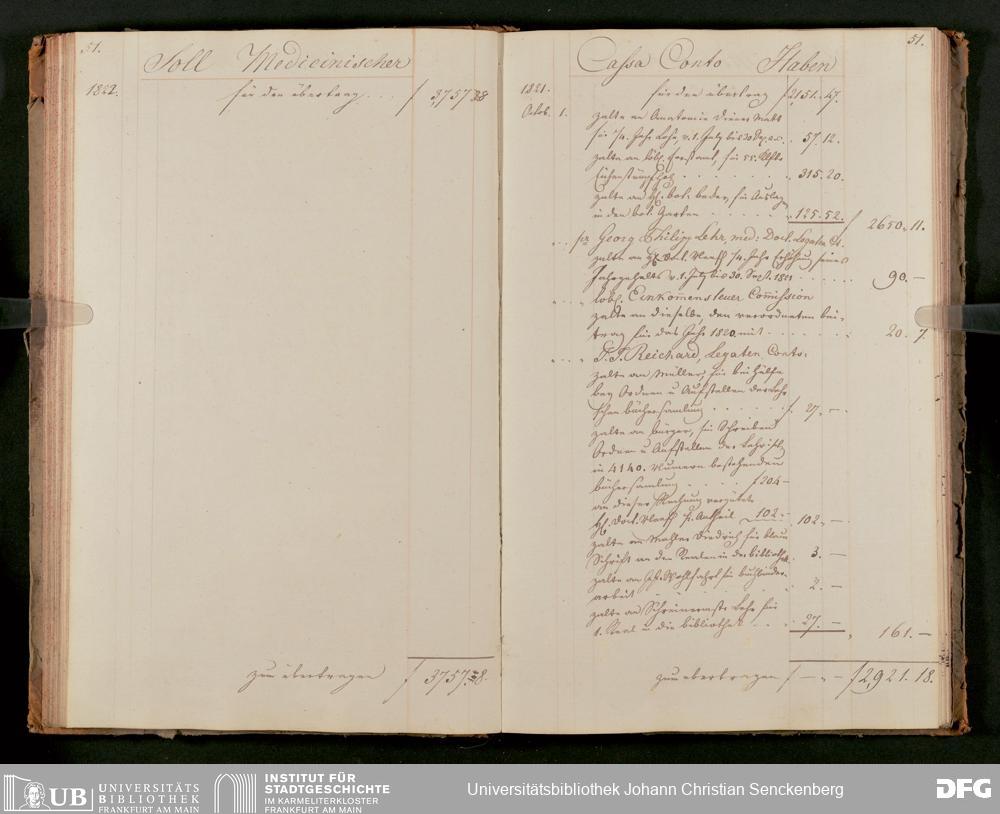 51.
Soll Medicinischer
1822.
für den übertrag . . . f 3,757 38
zum übertragen f 3757.38.
51.
Cassa Conto Haben
1821.
für den übertrag f 2151.47.
Octob. 1. zalte an Anatomie Diener Matt
für 1/4 Jahr Lohn, v. 1. July bis 30 Sep. a.c. . 57.12.
zalte an löbl. Forstamt, für 55.
. . . . . . . „ 315.20.
zalte an H. bot. für Auslag
in den bot. Garten . . . . . „ 125.52. f 2650„11.
. . pr Georg Philipp Lehr, med: Doct. Legaten Ct.
zalte an H. Doct. 1/4 Jahr Erhöhung seines
Jahrgehalts v. 1. July bis 30. Sept. 1821 . . . . . 90.—
. . „ löbl. Einkommensteuer Commission
zalte an dieselbe, den verordneten bei-
trag für das Jahr 1820. mit . . . . . . . 20. 7.
„ . . „ J. J. Reichard, Legaten Conto.
zalte an Müller, für beihülfe
bey Ordnen u Aufstellen der Lehr
schen büchersamlung . . . . . f. 27.„—.
zalte an bürger, für Schreiben
Ordnen u Aufstellen der Lehrisch
in 4140. Numern bestehenden
büchersamlung . . . . f 204—
an dieser Rechnung vergütete
H. Doct. 1/2. Antheil „ 102.— 102„—
zalte an Mahler Diedrich für blau
Schrift an den Realen in der bibliothek . 3. —
zalte an Wohlfahrt für buchbinder-
arbeit . . . . . . . . „ 2. —
zalte an Schreinermstr Lehr für
1. Real in die bibliothek . . . 27. — „ 161.—
zum übertragen f — „ — f 2,921.18.
UB UNIVERSITÄTS
BIBLIOTHEK
FRANKFURT AM MAIN
INSTITUT FÜR
STADTGESCHICHTE
IM KARMELITERKLOSTER
FRANKFURT AM MAIN
Universitätsbibliothek Johann Christian Senckenberg
DFG